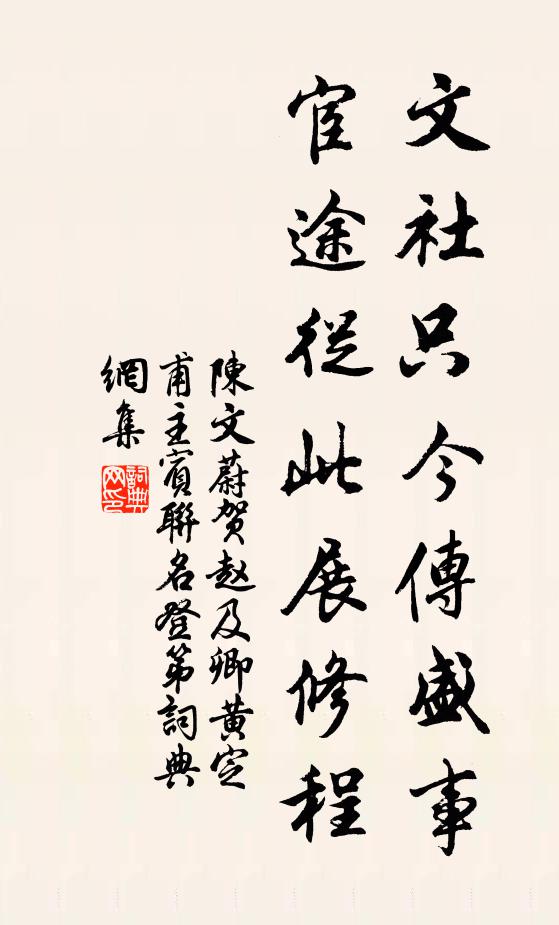 文社只今傳盛事
宦途從此展修程
陳文蔚贺赵及卿黄定
甫主賓聯名登第詞典
網集
詞典
网印